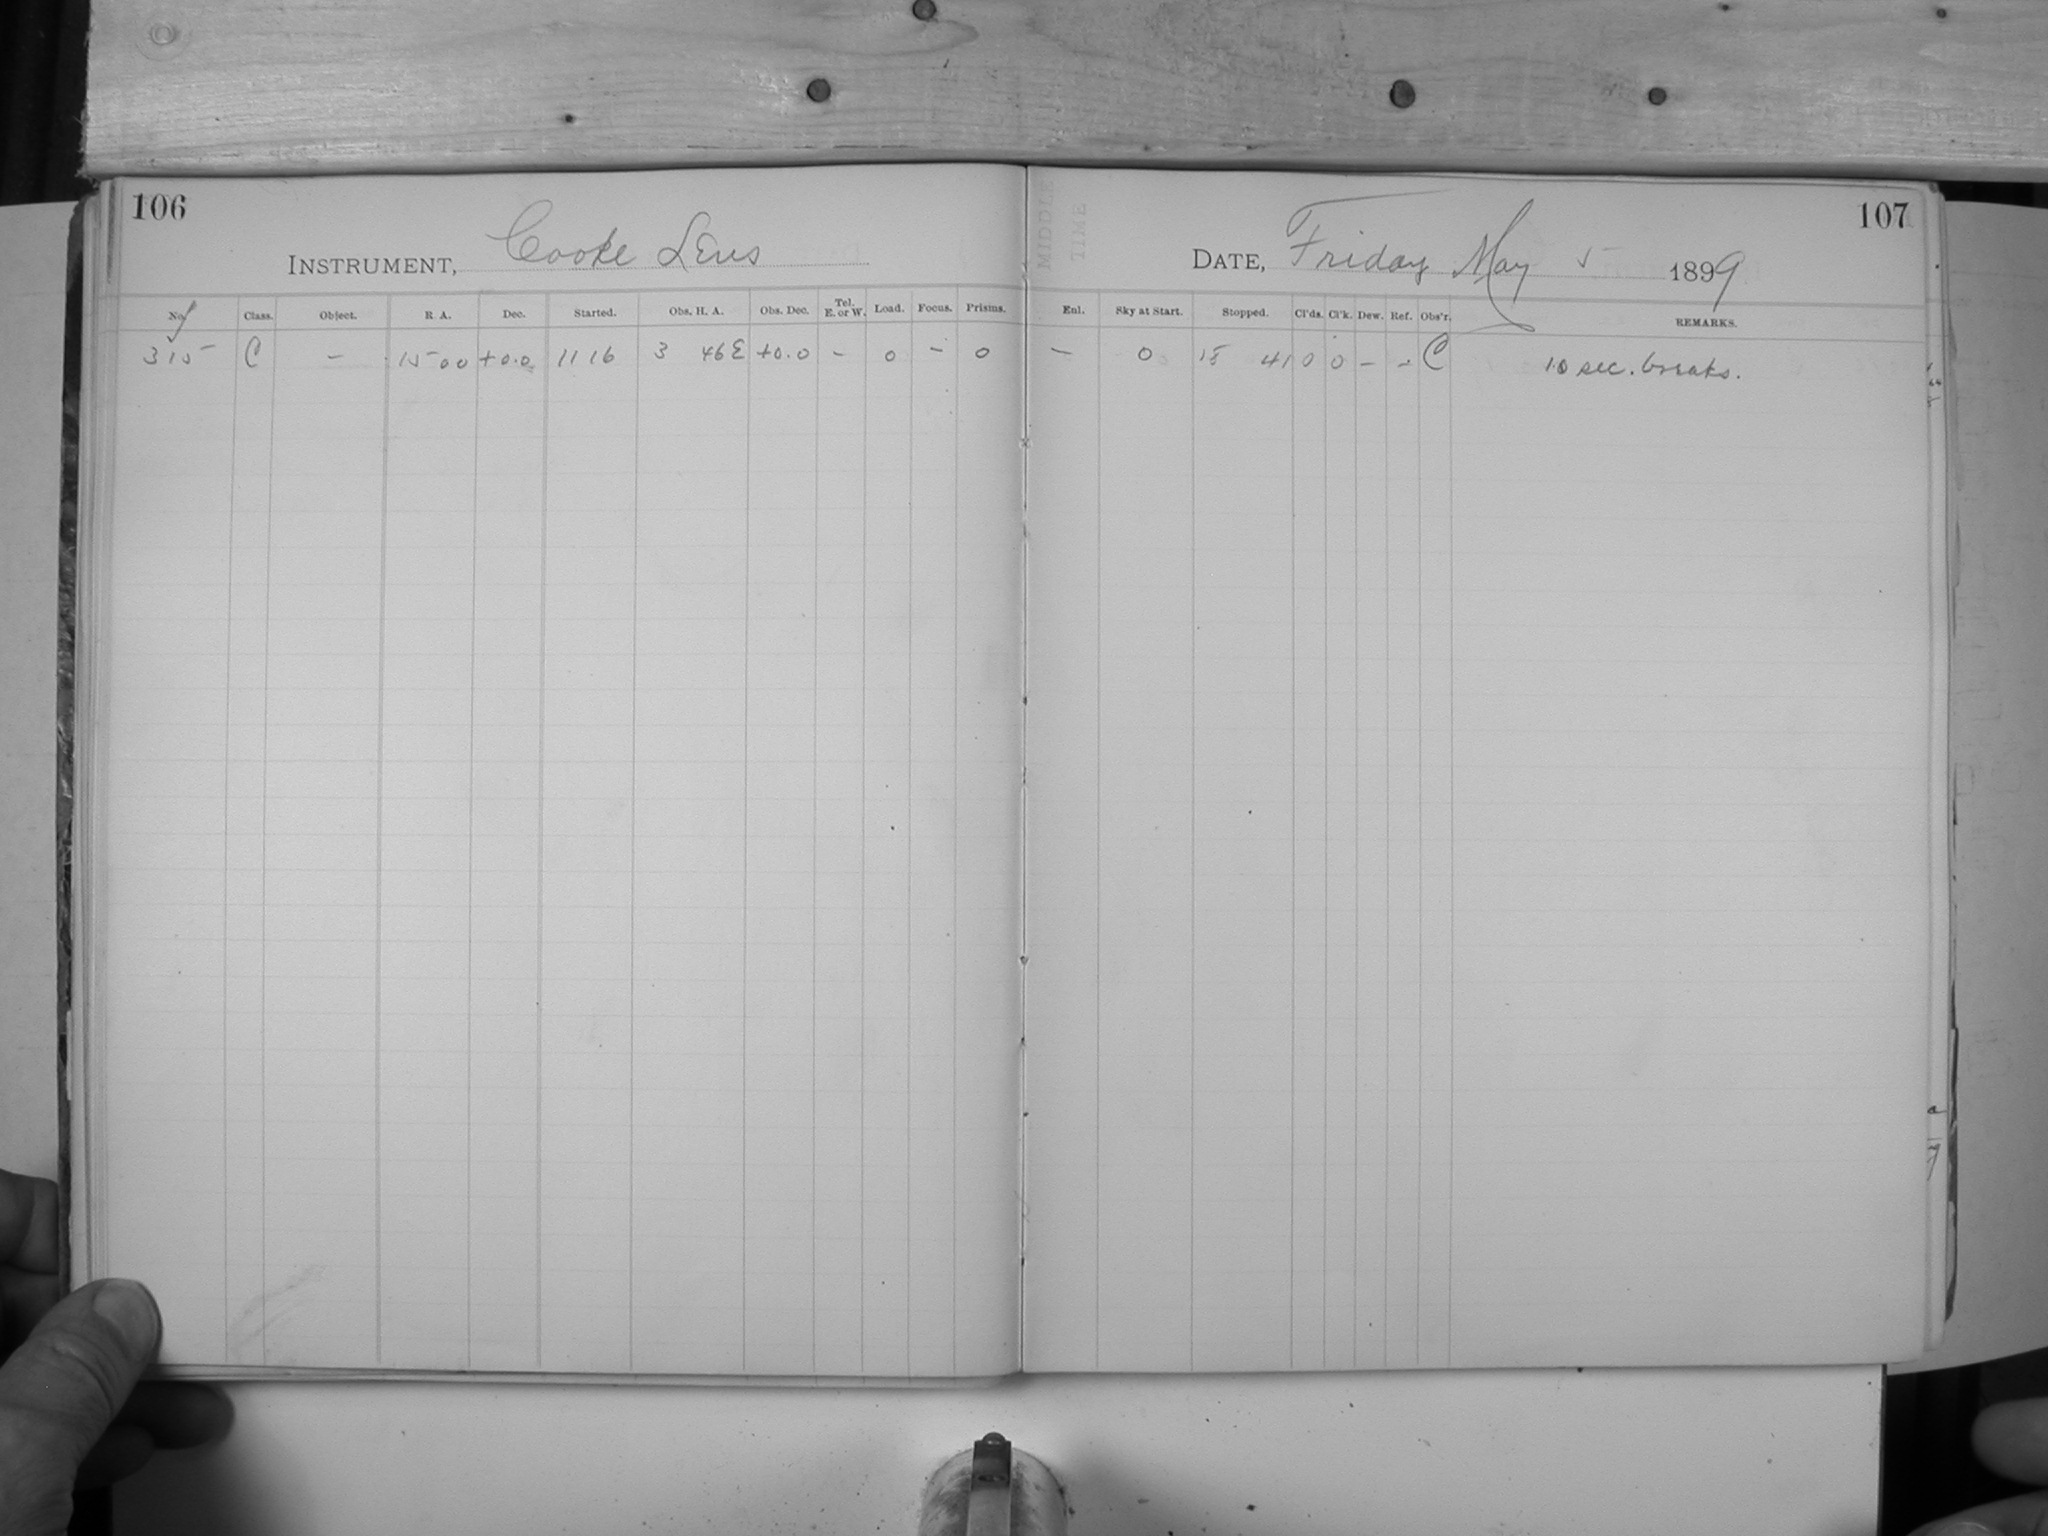 106
INSTRUMENT, Cooke Lens
No. Class. Object. R. A. Dec. Started. Obs. H. A. Obs. Dec. Tel. E. or W. Load. Focus. Prisms.
315 C – 15 00 +0.0 11 16 3 46 E +0.0 – 0 – 0
MIDDLE
TIME
107
DATE, Friday May 5 1899
Enl. Sky at Start. Stopped. Cl'ds. Cl'k. Dew. Ref. Obs'r. REMARKS.
– 0 15 41 0 0 – – C 10 sec. breaks.